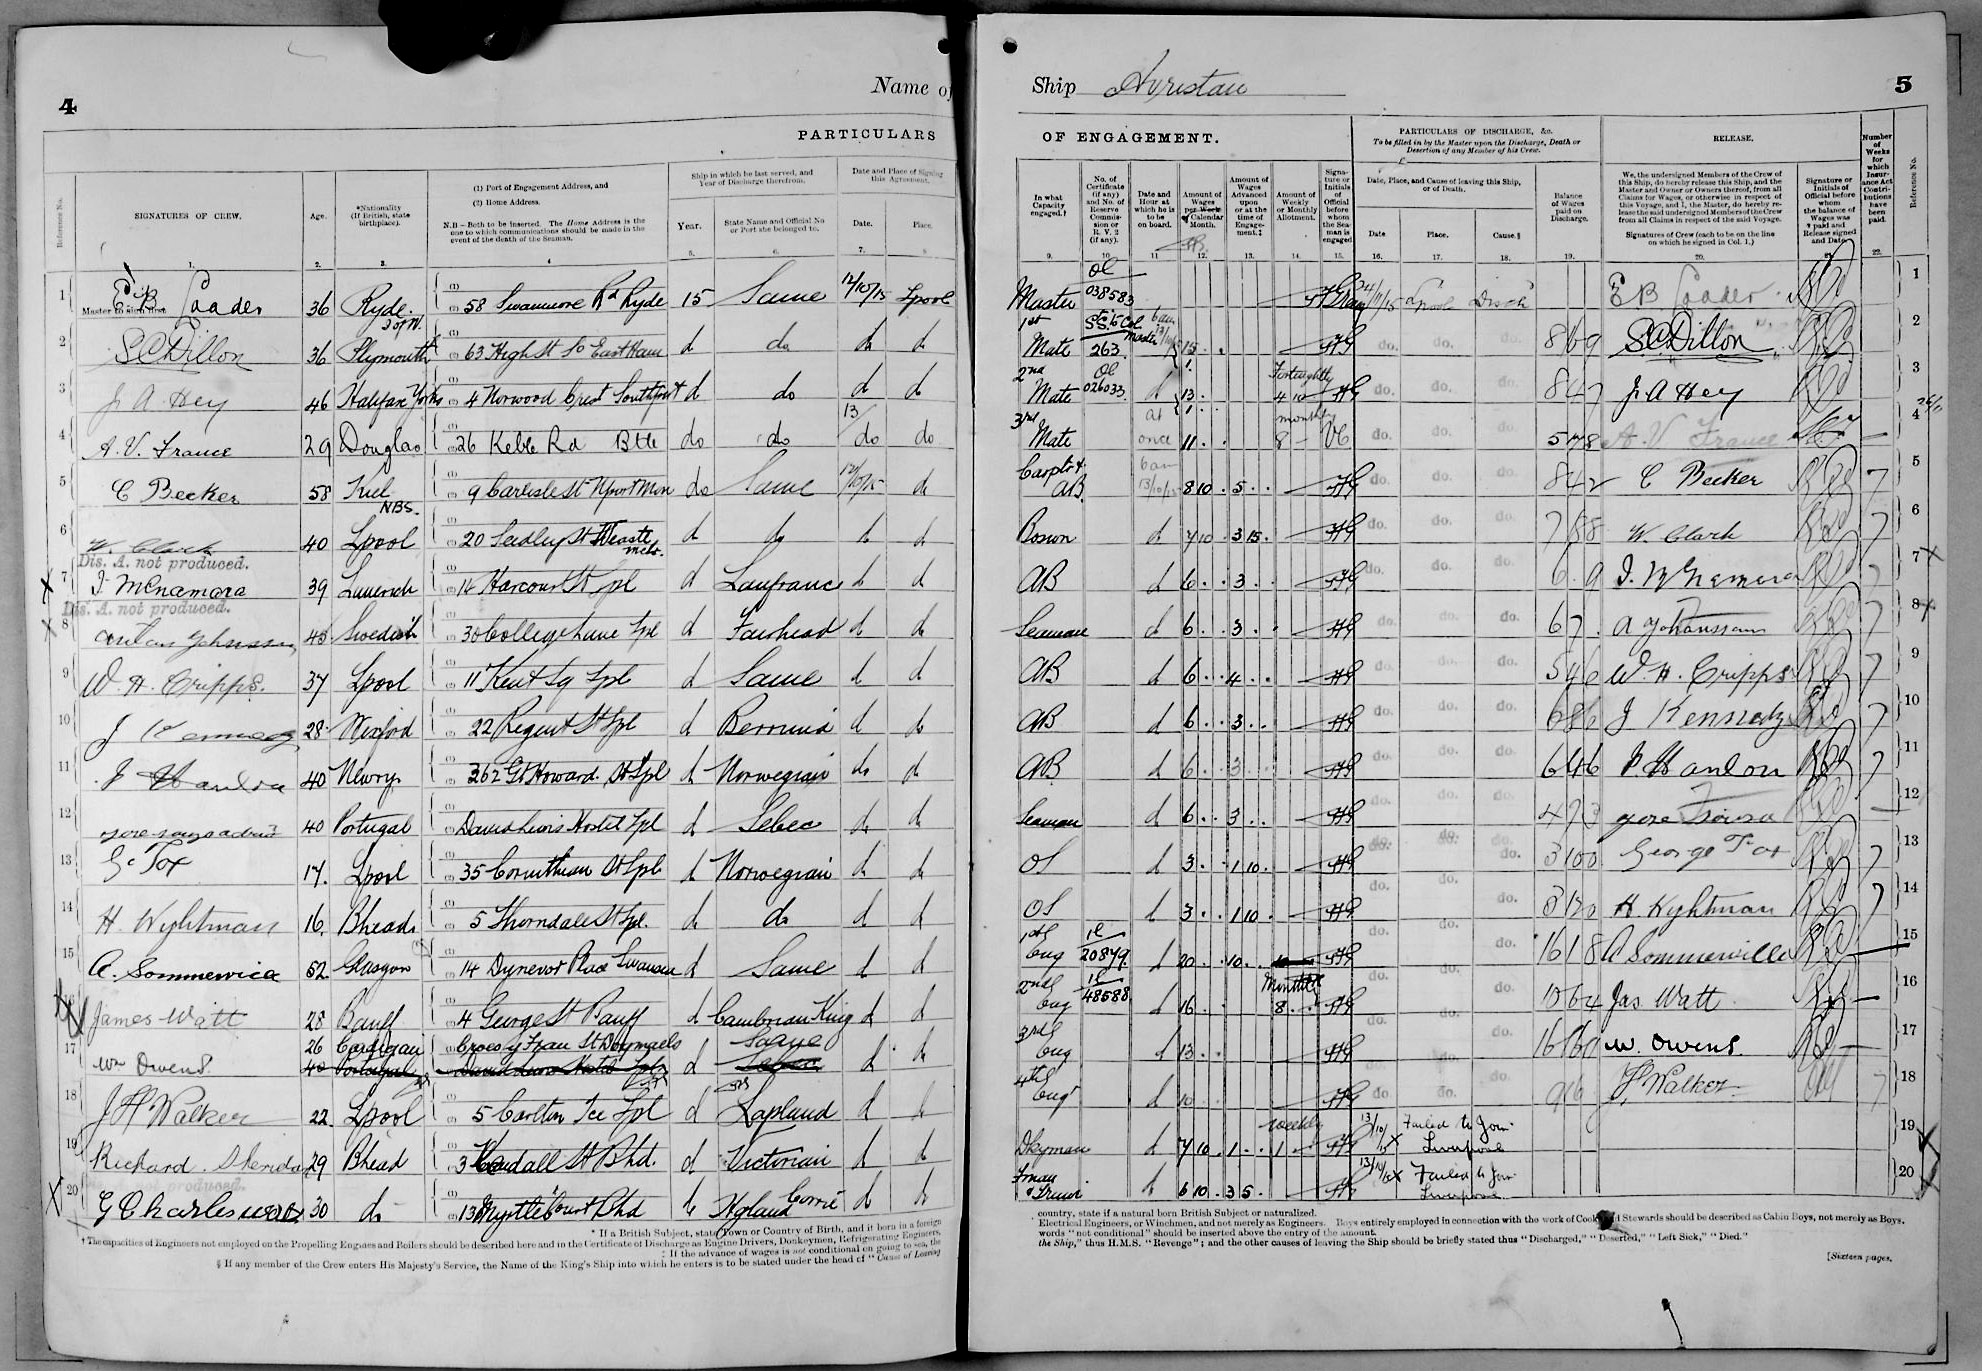 4
Name of
PARTICULARS
Reference No.
SIGNATURES OF CREW.
Age.
*Nationality (If British, state birthplace).
(1) Port of Engagement Address, and
(2) Home Address.
N.B.—Both to be inserted. The Home Address is the one to which communications should be made in the event of the death of the Seaman.
Ship in which he last served, and Year of Discharge therefrom.
Year.
State Name and Official No or Port she belonged to.
Date and Place of Signing this Agreement.
Date.
Place.
1. 2. 3. 4 5. 6. 7. 8
1 E.B. Coader 36 Ryde. I of W. 58 Swanmore Rd Ryde 15 Same 12/10/15 Lpool
Master to sign first.
2 S C Dillon 36 Plymouth 63 High St So East Ham d do do do
3 J A Hey 46 Halifax Yorks 4 Norwood Cres Southport d do do do
4 A. V. France 29 Douglas 26 Keble Rd Btle do do 13/ do do
5 C Becker 58 Kiel NBS. 9 Carlisle St Nport Mon do Same 12/10/15 d
6 W. Clark 40 Lpool 20 Seedley St d do d d
Dis. A. not produced.
7 J McNamara 39 Limerick 14 Harcourt St Lpl d Lanfranc d d
Dis. A. not produced.
8 Swedish 30 College Lane Lpl d Fairhead d d
9 W. H. Cripps. 37 Lpool 11 Kent Sq Lpl d Same d d
10 J Kennedy 28 Wexford 22 Regent St Lpl d d d
11 J Hanlon 40 Newry 262 Gt Howard St Lpl d Norwegian do d
12 40 Portugal David Lewis Hostel Lpl d Sebec d d
13 G Fox 17. Lpool 35 Corinthian St Lpl d Norwegian d d
14 H Wightman 16. Bhead 5 Thorndale St Lpl. d do d d
15 A. Sommerville 52 Glasgow 14 Dynevor Place Swansea d Same d d
16 James Watt 28 Banff 4 George St Banff d Cambrian King d d
17 Wm Owens. 26 Cardigan St Dogmaels d Same d d
18 J H Walker 22 Lpool 5 Carlton Tce Lpl d Lapland d d
19 Richard Sheridan 29 Bhead 3 Kendall St Bhd. d Victorian d d
Dis. A. not produced.
20 G Charleswor 30 do 13 Myrtle Court Bhd d d d
* If a British Subject, state Town or Country of Birth, and if born in a foreign
† The capacities of Engineers not employed on the Propelling Engines and Boilers should be described here and in the Certificate of Discharge as Engine Drivers, Donkeymen, Refrigerating Engineers,
‡ If the advance of wages is not conditional on going to sea, the
§ If any member of the Crew enters His Majesty's Service, the Name of the King's Ship into which he enters is to be stated under the head of "Cause of Leaving
Ship
5
OF ENGAGEMENT.
In what Capacity engaged.†
No. of Certificate (if any) and No. of Reserve Commission or R. V. 2 (if any).
Date and Hour at which he is to be on board.
Amount of Wages per Week or Calendar Month.
Amount of Wages Advanced upon or at the time of Engagement.‡
Amount of Weekly or Monthly Allotment.
Signature or Initials of Official before whom the Seaman is engaged
PARTICULARS OF DISCHARGE, &c.
To be filled in by the Master upon the Discharge, Death or Desertion of any Member of his Crew.
Date, Place, and Cause of leaving this Ship, or of Death.
Date
Place.
Cause.§
Balance of Wages paid on Discharge.
RELEASE.
We, the undersigned Members of the Crew of this Ship, do hereby release this Ship, and the Master and Owner or Owners thereof, from all Claims for Wages, or otherwise in respect of this Voyage, and I, the Master, do hereby release the said undersigned Members of the Crew from all Claims in respect of the said Voyage.
Signatures of Crew (each to be on the line on which he signed in Col. 1.)
Signature or Initials of Official before whom the balance of Wages was paid and Release signed and Date.
Number of Weeks for which Insurance Act Contributions have been paid.
Reference No.
9. 10. 11 12. 13. 14. 15. 16. 17. 18. 19. 20. 21. 22.
Master 038583 Lpool Disch E B Coader 1
1st Mate 263 15 do. do. do. 8 6 9 S C Dillon 2
2nd Mate 026033 d 13 Fortnightly 4 10 do. do. do. 8 4 7 J A Hey 3
3rd Mate at once 11 monthly 8 do. do. do. 5 17 8 A V France 4
Carptr & AB 6am 13/10/15 8 10 5 do. do. do. 8 4 2 C Becker 5
Bosun d 7 10 3 15 do. do. do. 7 8 8 W. Clark 6
AB d 6 3 do. do. do. 6 9 J. McNamara 7
Seaman d 6 3 do. do. do. 6 7 A Johansson 8
AB d 6 4 do. do. do. 5 4 6 W. H. Cripps 9
AB d 6 3 do. do. do. 6 8 6 J Kennedy 10
AB d 6 3 do. do. do. 6 4 6 P Hanlon 11
Seaman d 6 3 do. do. do. 4 7 3 12
OS d 3 1 10 do. do. do. 3 10 0 George Fox 13
OS d 3 1 10 do. do. do. 3 12 0 H Wightman 14
1st Eng 20879 d 20 10 do. do. do. 16 1 8 A Sommerville 15
2nd Eng 48588 d 16 Monthly 8 do. do. do. 10 6 4 Jas Watt 16
3rd Eng d 13 do. do. do. 16 16 0 W. Owens. 17
4th Engr d 10 do. do. do. 9 6 J H Walker 18
Dkyman d 7 10 1 weekly 1 13/10/15 Failed to Join Liverpool 19
Fman & Trimr d 6 10 3 5 13/10/15 Failed to Join Liverpool 20
country, state if a natural born British Subject or naturalized.
Electrical Engineers, or Winchmen, and not merely as Engineers. Boys entirely employed in connection with the work of Cooks and Stewards should be described as Cabin Boys, not merely as Boys.
words "not conditional" should be inserted above the entry of the amount.
the Ship," thus H.M.S. "Revenge"; and the other causes of leaving the Ship should be briefly stated thus "Discharged," "Deserted," "Left Sick," "Died."
[Sixteen pages.